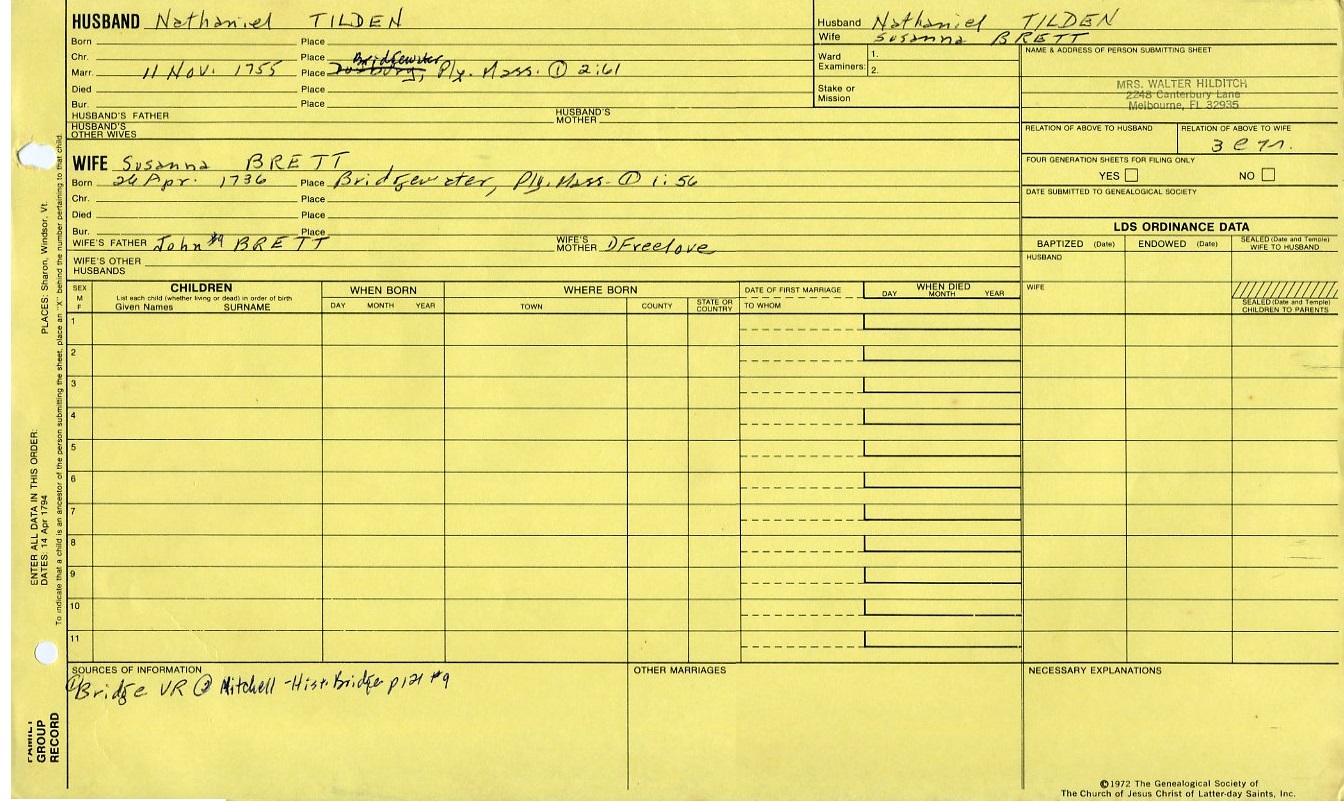 HUSBAND Nathaniel TILDEN
Born Place
Chr. Place Bridgewater
Marr. 11 Nov. 1755 Place Duxbury, Ply. Mass. ① 2:61
Died Place
Bur. Place
HUSBAND'S FATHER HUSBAND'S MOTHER
HUSBAND'S OTHER WIVES
WIFE Susanna BRETT
Born 26 Apr. 1736 Place Bridgewater, Ply. Mass. ① 1:56
Chr. Place
Died Place
Bur. Place
WIFE'S FATHER John #9 BRETT WIFE'S MOTHER Freelove
WIFE'S OTHER HUSBANDS
Husband Nathaniel TILDEN
Wife Susanna BRETT
Ward Examiners: 1.
2.
Stake or Mission
NAME & ADDRESS OF PERSON SUBMITTING SHEET
MRS. WALTER HILDITCH
2248 Canterbury Lane
Melbourne, FL 32935
RELATION OF ABOVE TO HUSBAND RELATION OF ABOVE TO WIFE
FOUR GENERATION SHEETS FOR FILING ONLY
YES NO
DATE SUBMITTED TO GENEALOGICAL SOCIETY
LDS ORDINANCE DATA
BAPTIZED (Date) ENDOWED (Date) SEALED (Date and Temple) WIFE TO HUSBAND
HUSBAND
WIFE
SEALED (Date and Temple) CHILDREN TO PARENTS
SEX M F
CHILDREN
List each child (whether living or dead) in order of birth
Given Names SURNAME
WHEN BORN
DAY MONTH YEAR
WHERE BORN
TOWN COUNTY STATE OR COUNTRY
DATE OF FIRST MARRIAGE
TO WHOM
WHEN DIED
DAY MONTH YEAR
1
2
3
4
5
6
7
8
9
10
11
SOURCES OF INFORMATION
① Bridge VR ② Mitchell - Hist. Bridge p121 #9
OTHER MARRIAGES
NECESSARY EXPLANATIONS
©1972 The Genealogical Society of
The Church of Jesus Christ of Latter-day Saints, Inc.
FAMILY GROUP RECORD
ENTER ALL DATA IN THIS ORDER:
DATES: 14 Apr 1794
PLACES: Sharon, Windsor, Vt.
To indicate that a child is an ancestor of the person submitting the sheet, place an "X" behind the number pertaining to that child.